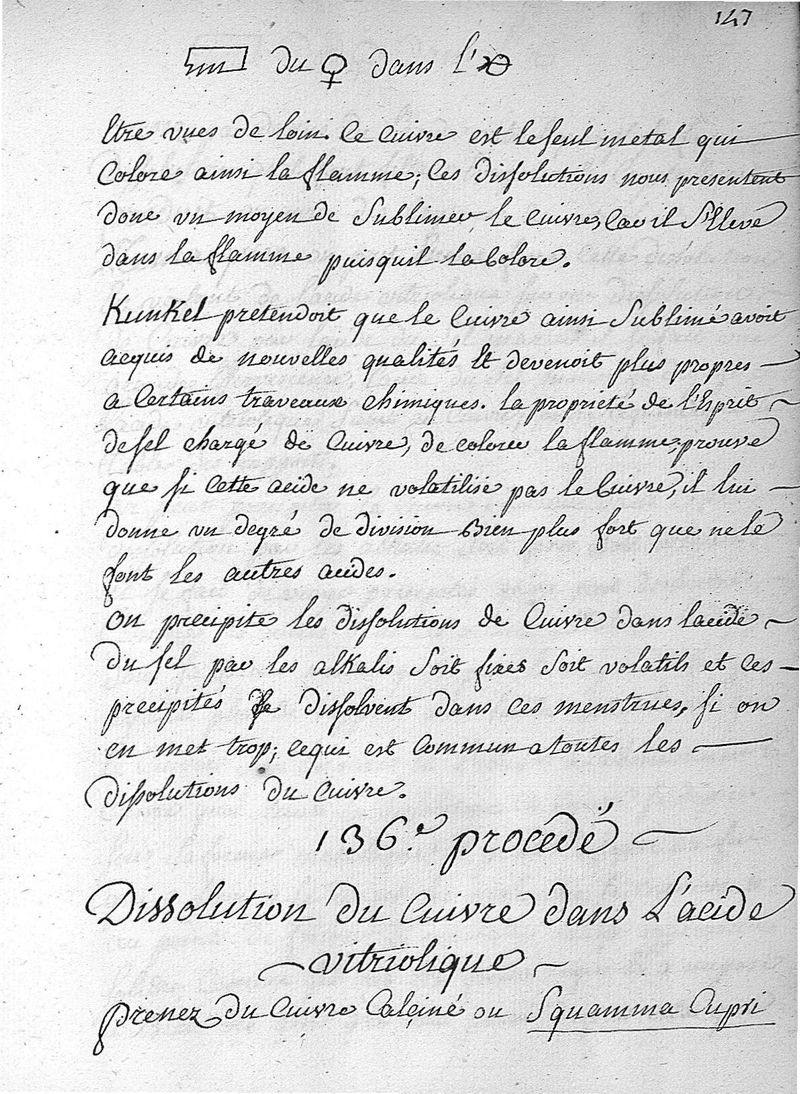 147
du ♀ dans l'
Etre vues de loin. Ce Cuivre est le seul metal qui
Colore ainsi la flamme; Ces dissolutions nous presentent
donc un moyen de Sublimer le Cuivre, Car il S'Eleve
dans la flamme puisquil la Colore.
Kunkel pretendoit que le Cuivre ainsi Sublimé avoit
acquis de nouvelles qualités Et devenoit plus propres
a Certains travaux chimiques. la proprieté de l'Esprit
de sel chargé de Cuivre, de colorer la flamme, prouve
que si Cette acide ne volatilise pas le Cuivre, il lui
donne un degré de division Bien plus fort que ne le
font les autres acides.
on precipite les dissolutions de Cuivre dans lacide
du sel par les alkalis Soit fixes Soit volatils et Ces
precipités Se dissolvent dans ces menstrues, si on
en met trop; cequi est Commun atoutes les
dissolutions du Cuivre.
136.e procedé
Dissolution du Cuivre dans L'acide
vitriolique
prenez du Cuivre Calciné ou Squamma Cupri